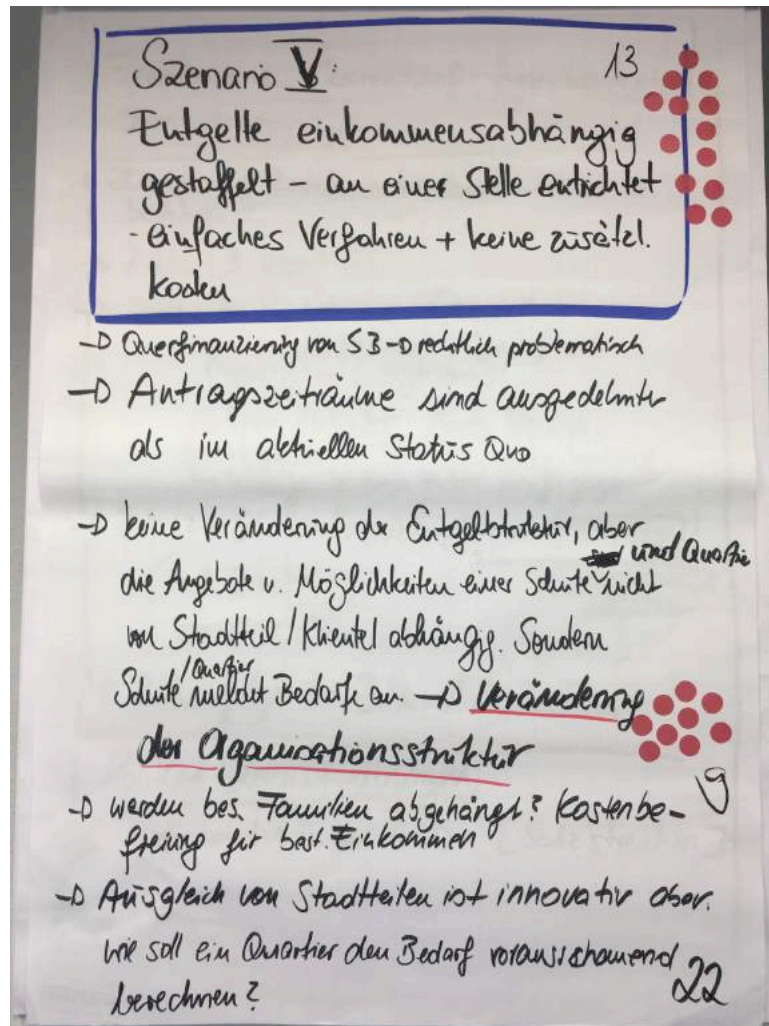 Szenario V:
13
Entgelte einkommensabhängig
gestaffelt – an einer Stelle entrichtet
- einfaches Verfahren + keine zusätzl.
Kosten
→ Querfinanzierung von SB → rechtlich problematisch
→ Antragszeiträume sind ausgedehnter
als im aktuellen Status Quo
→ keine Veränderung der Entgeltstruktur, aber
die Angebote u. Möglichkeiten einer Schule und Quartier nicht
von Stadtteil / Klientel abhängig. Sondern
Schule / Quartier meldet Bedarfe an. → Veränderung
der Organisationsstruktur
9
→ werden bes. Familien abgehängt? Kostenbe-
freiung für best. Einkommen
→ Ausgleich von Stadtteilen ist innovativ aber.
wie soll ein Quartier den Bedarf vorausschauend
berechnen?
22